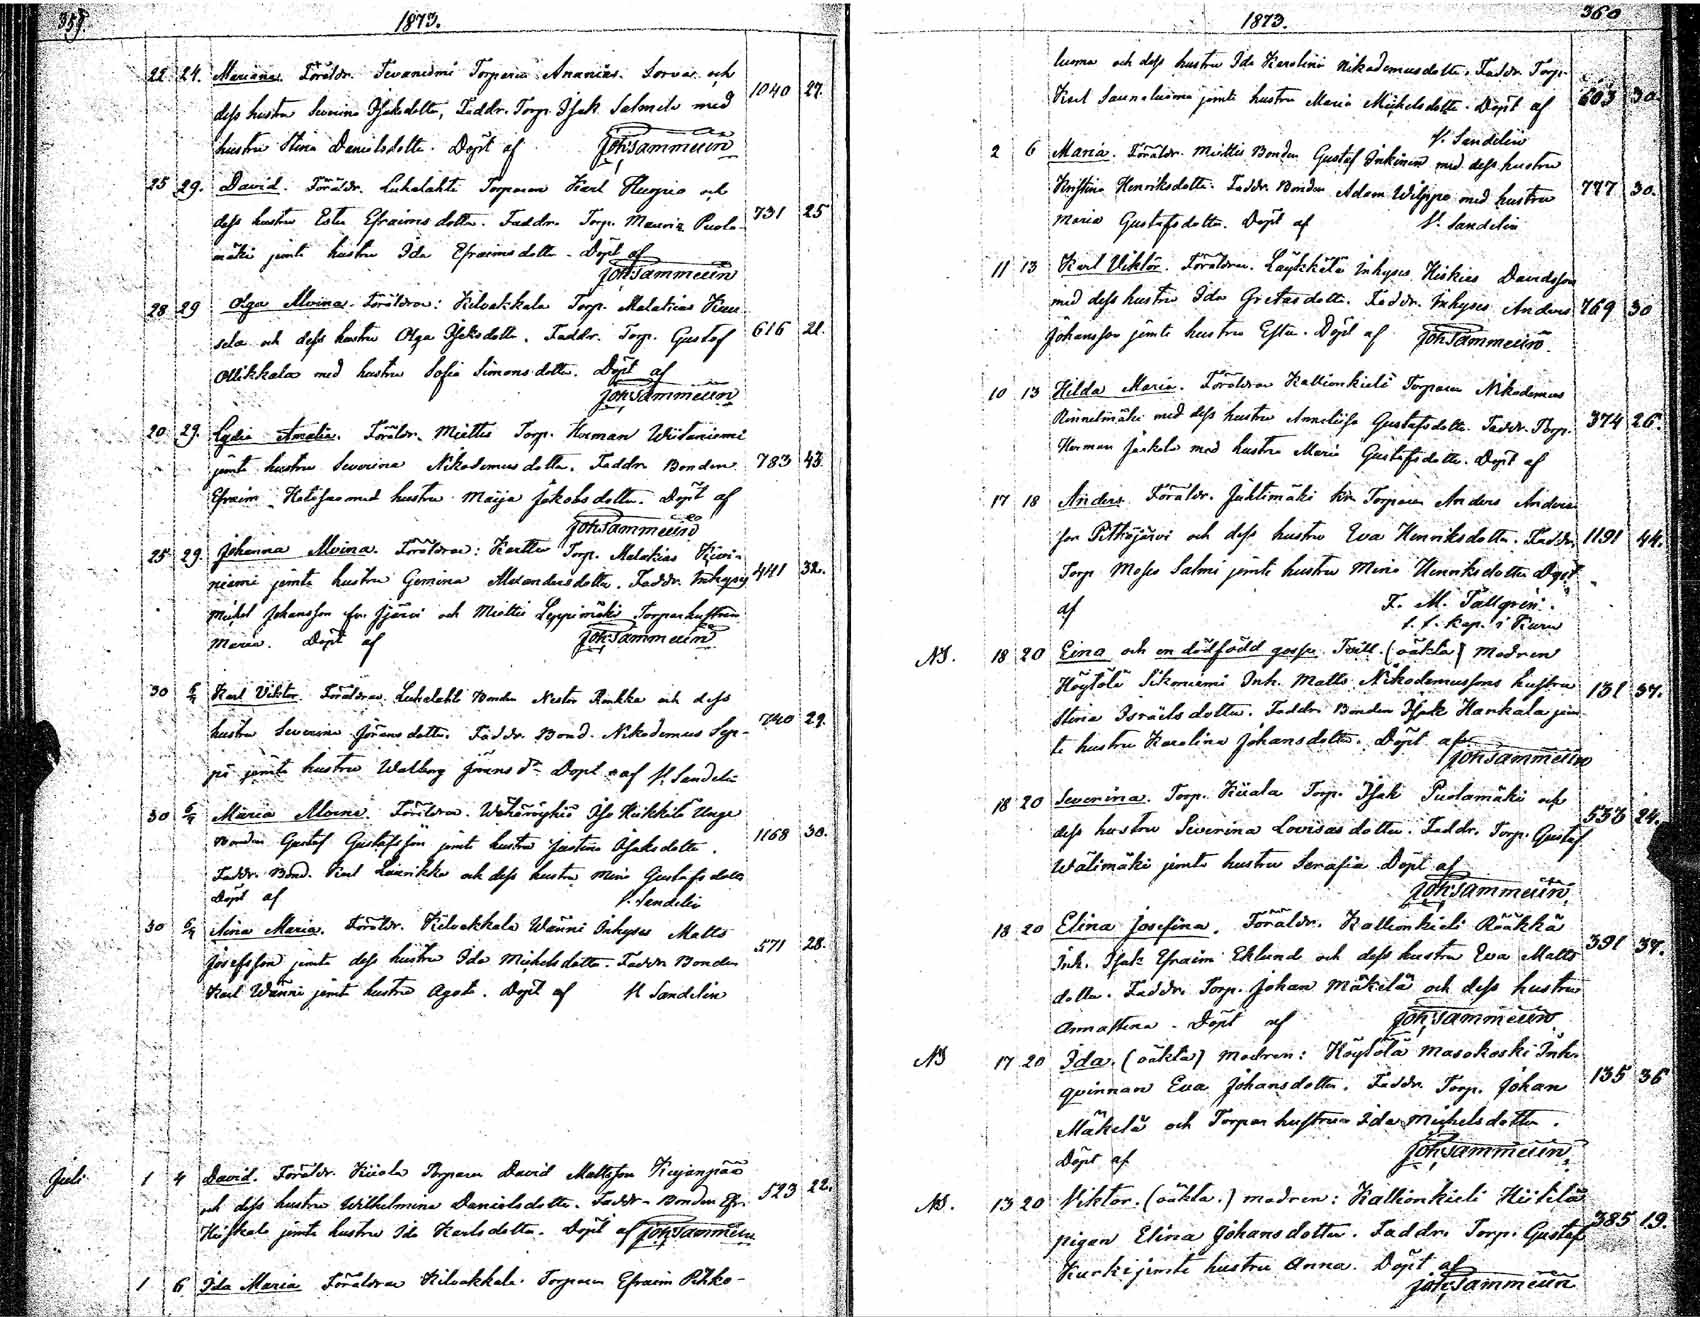 359.
1873.
22 24. Mariana. Föräldr. Tevaniemi Torparen Ananias Sorva och 1040 27.
dess hustru Severina Isaksdotter, Faddr. Torp. Isak Salmela med
hustru Stina Danielsdotter. Döpt af Joh: Sammelin
25 29. David. Föräldr. Luhalahti Torparen Karl Kuopio och 731 25
dess hustru Ester Efraimsdotter. Faddr. Torp. Mauriz Puola-
mäki jemte hustru Ida Efraimsdotter. Döpt af
Joh: Sammelin
28 29 Olga Alvina. Föräldrar: Kilvakkala Torp. Malakias Kuu
sela och dess hustru Olga Isaksdotter. Faddr. Torp. Gustaf 616 21.
Ollikkala med hustru Sofia Simonsdotter. Döpt af
Joh: Sammelin
20 29. Lydia Amalia. Föräldr. Miettis Torp. Herman Wiitaniemi
jemte hustru Severina Nikodemusdotter. Faddr. Bonden 783 43.
Efraim med hustru Maija Jakobsdotter. Döpt af
Joh: Sammelin
25 29. Johanna Alvina. Föräldrar: Karttu Torp. Malakias Kivi-
niemi jemte hustru Gemina Alexandersdotter. Faddr. Inhyses 441 32.
Michel Johansson fr. Jyjärvi och Miettis Leppimäki Torparhustrun
Maria. Döpt af Joh: Sammelin
30 6/7 Karl Viktor. Föräldrar Luhalahti Bonden Nestor Runkka och dess
hustru Severina Göransdotter. Faddr. Bond. Nikodemus Sep- 740 29.
pä jemte hustru Walborg Göransdr. Döpt af V. Sandelin
30 6/7 Maria Alvina. Föräldrar. Wähäröyhiö Iso Heikkilä Unge
Bonden Gustaf Gustafsson jemte hustru Justina Isaksdotter. 1168 30.
Faddr. Bond. Karl Laurikka och dess hustru Maria Gustafsdotter
Döpt af V. Sandelin
30 6/7 Nina Maria. Föräldr. Kilvakkala Wänni Inhyses Matts
Josefsson jemte dess hustru Ida Michelsdotter. Faddr. Bonden 571 28.
Karl Wänni jemte hustru Agata. Döpt af V. Sandelin
Juli 1 4 David. Föräldr. Kiiala Torparen David Mattsson Kujanpää
och dess hustru Wilhelmina Danielsdotter. Faddr. Bonden Efr. 523 22.
Hiiskala jemte hustru Ida Karlsdotter. Döpt af Joh: Sammelin
1 6. Ida Maria Föräldrar Kilvakkala. Torparen Efraim Pihko-
1873.
360
luoma och dess hustru Ida Karolina Nikodemusdotter. Faddr. Torp.
Karl Saunaluoma jemte hustru Maria Michelsdotter. Döpt af 603 30.
V. Sandelin
2 6 Maria. Föräldr. Miettis Bonden Gustaf Inkinen med dess hustru
Kristina Henriksdotter. Faddr. Bonden Adam Wilppo med hustru 777 30.
Maria Gustafsdotter. Döpt af V. Sandelin
11 13 Karl Viktor. Föräldrar. Läykkälä Inhyses Hiskias Davidsson
med dess hustru Ida Gretasdotter. Faddr. Inhyses Anders 769 30
Johansson jemte hustru Ester. Döpt af Joh: Sammelin.
10 13 Hilda Maria. Föräldrar Kallionkieli Torparen Nikodemus
Rinnelmäki med dess hustru Annaliisa Gustafsdotter. Faddr. Torp. 374 26.
Herman Jaskala med hustru Maria Gustafsdotter. Döpt af
17 18 Anders. Föräldr. Juhtimäki kr. Torparen Anders Anders
son Pitkäjärvi och dess hustru Eva Henriksdotter. Faddr. 1191 44.
Torp Moses Salmi jemte hustru Maria Henriksdotter Döpt
af F. M. Tallgren.
t. f. Kap. i Kuru
NB. 18 20 Eina och en dödfödd gosse Tvill. (oäkta) Modren
Höytölä Sikoniemi Inh. Matts Nikodemussons hustru 131 37.
Stina Israelsdotter. Faddr. Bonden Isak Harkala jem-
te hustru Karolina Johansdotter. Döpt af
Joh: Sammelin
18 20 Severina. Torp. Kiiala Torp. Isak Puolamäki och
dess hustru Severina Lovisasdotter. Faddr. Torp. Gustaf 533 24.
Wälimäki jemte hustru Serafia Döpt af
Joh: Sammelin
18 20 Elina Josefina. Föräldr. Kallionkieli Rääkkä
Inh. Isak Efraim Eklund och dess hustru Eva Matts 391 37.
dotter. Faddr. Torp. Johan Mäkilä och dess hustru
Annastina. Döpt af Joh: Sammelin
NB 17 20 Ida. (oäkta) Modren: Höytölä Masokoski Inh.
qvinnan Eva Johansdotter. Faddr. Torp. Johan 135 36
Mäkelä och Torparhustrun Ida Michelsdotter.
Döpt af Joh: Sammelin
NB. 13 20 Viktor. (oäkta.) modren: Kallionkieli Hiitilä
pigan Elina Johansdotter. Faddr. Torp. Gustaf 385 19.
Kurki jemte hustru Anna. Döpt af
Joh: Sammelin